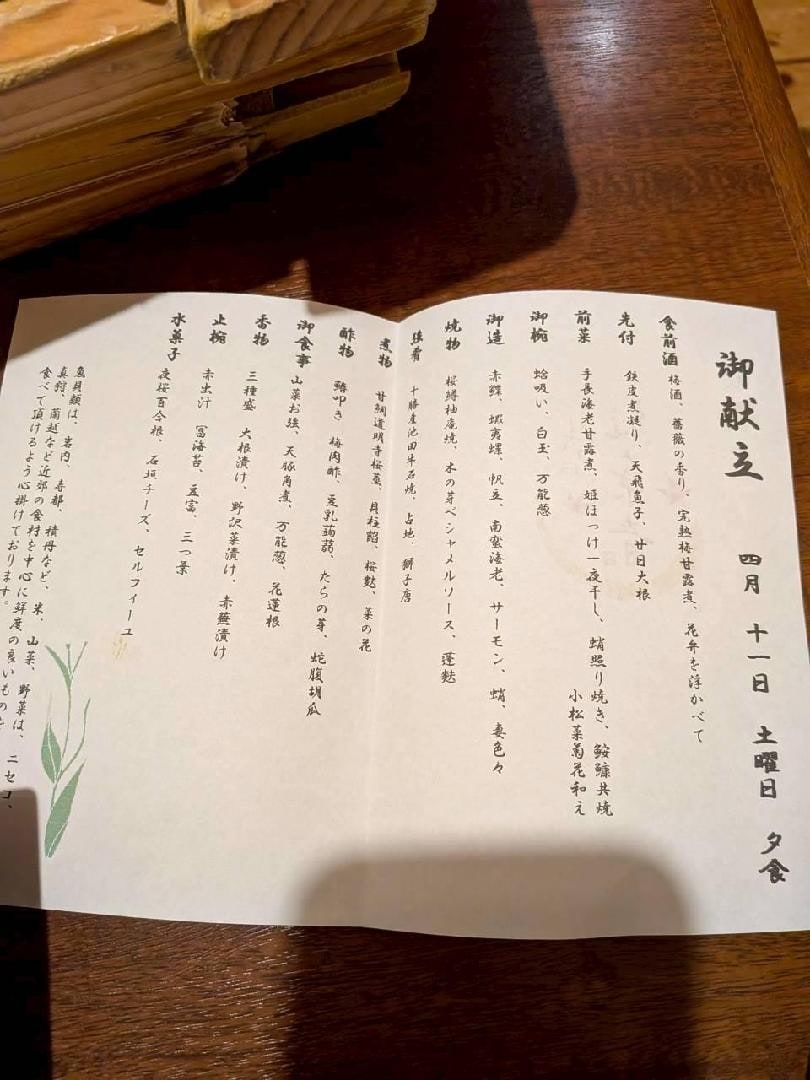 御献立 四月 十一日 土曜日 夕食
食前酒 梅酒、薔薇の香り、完熟梅甘露煮、花弁を浮かべて
先付 鉄皮煮凝り、天飛魚子、廿日大根
前菜 手長海老甘露煮、姫ほっけ一夜干し、蛸照り焼き、鮟鱇共焼
小松菜菊花和え
御椀 蛤吸い、白玉、万能葱
御造 赤鰈、蝦夷螺、帆立、南蛮海老、サーモン、蛸、妻色々
焼物 桜鱒柚庵焼、木の芽ベシャメルソース、蓬麩
強肴 十勝産池田牛石焼、占地、獅子唐
煮物 甘鯛道明寺桜蒸、貝柱餡、桜麩、菜の花
酢物 鰊叩き 梅肉酢、豆乳蒟蒻、たらの芽、蛇腹胡瓜
御食事 山菜お強、天豚角煮、万能葱、花蓮根
香物 三種盛 大根漬け、野沢菜漬け、赤蕪漬け
止椀 赤出汁 冨海苔、豆富、三つ葉
水菓子 夜桜百合今根、石垣チーズ、セルフィーユ
魚貝類は、岩内、寿都、積丹など、米、山菜、野菜は、ニセコ、
真狩、蘭越など近郊の食材を中心に鮮度の良いものを
食べて頂けるよう心掛けております。